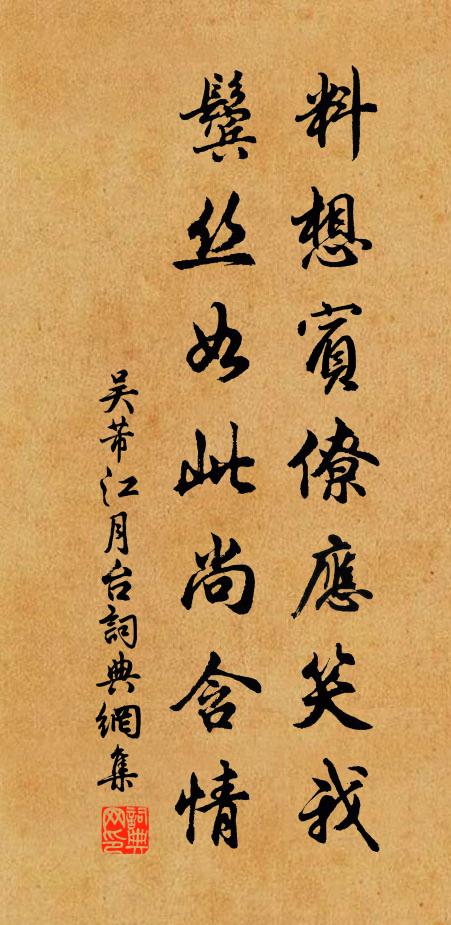 料想賓僚應笑我
鬓丝如此尚含情
吴芾江月台詞典網集
詞典
网印